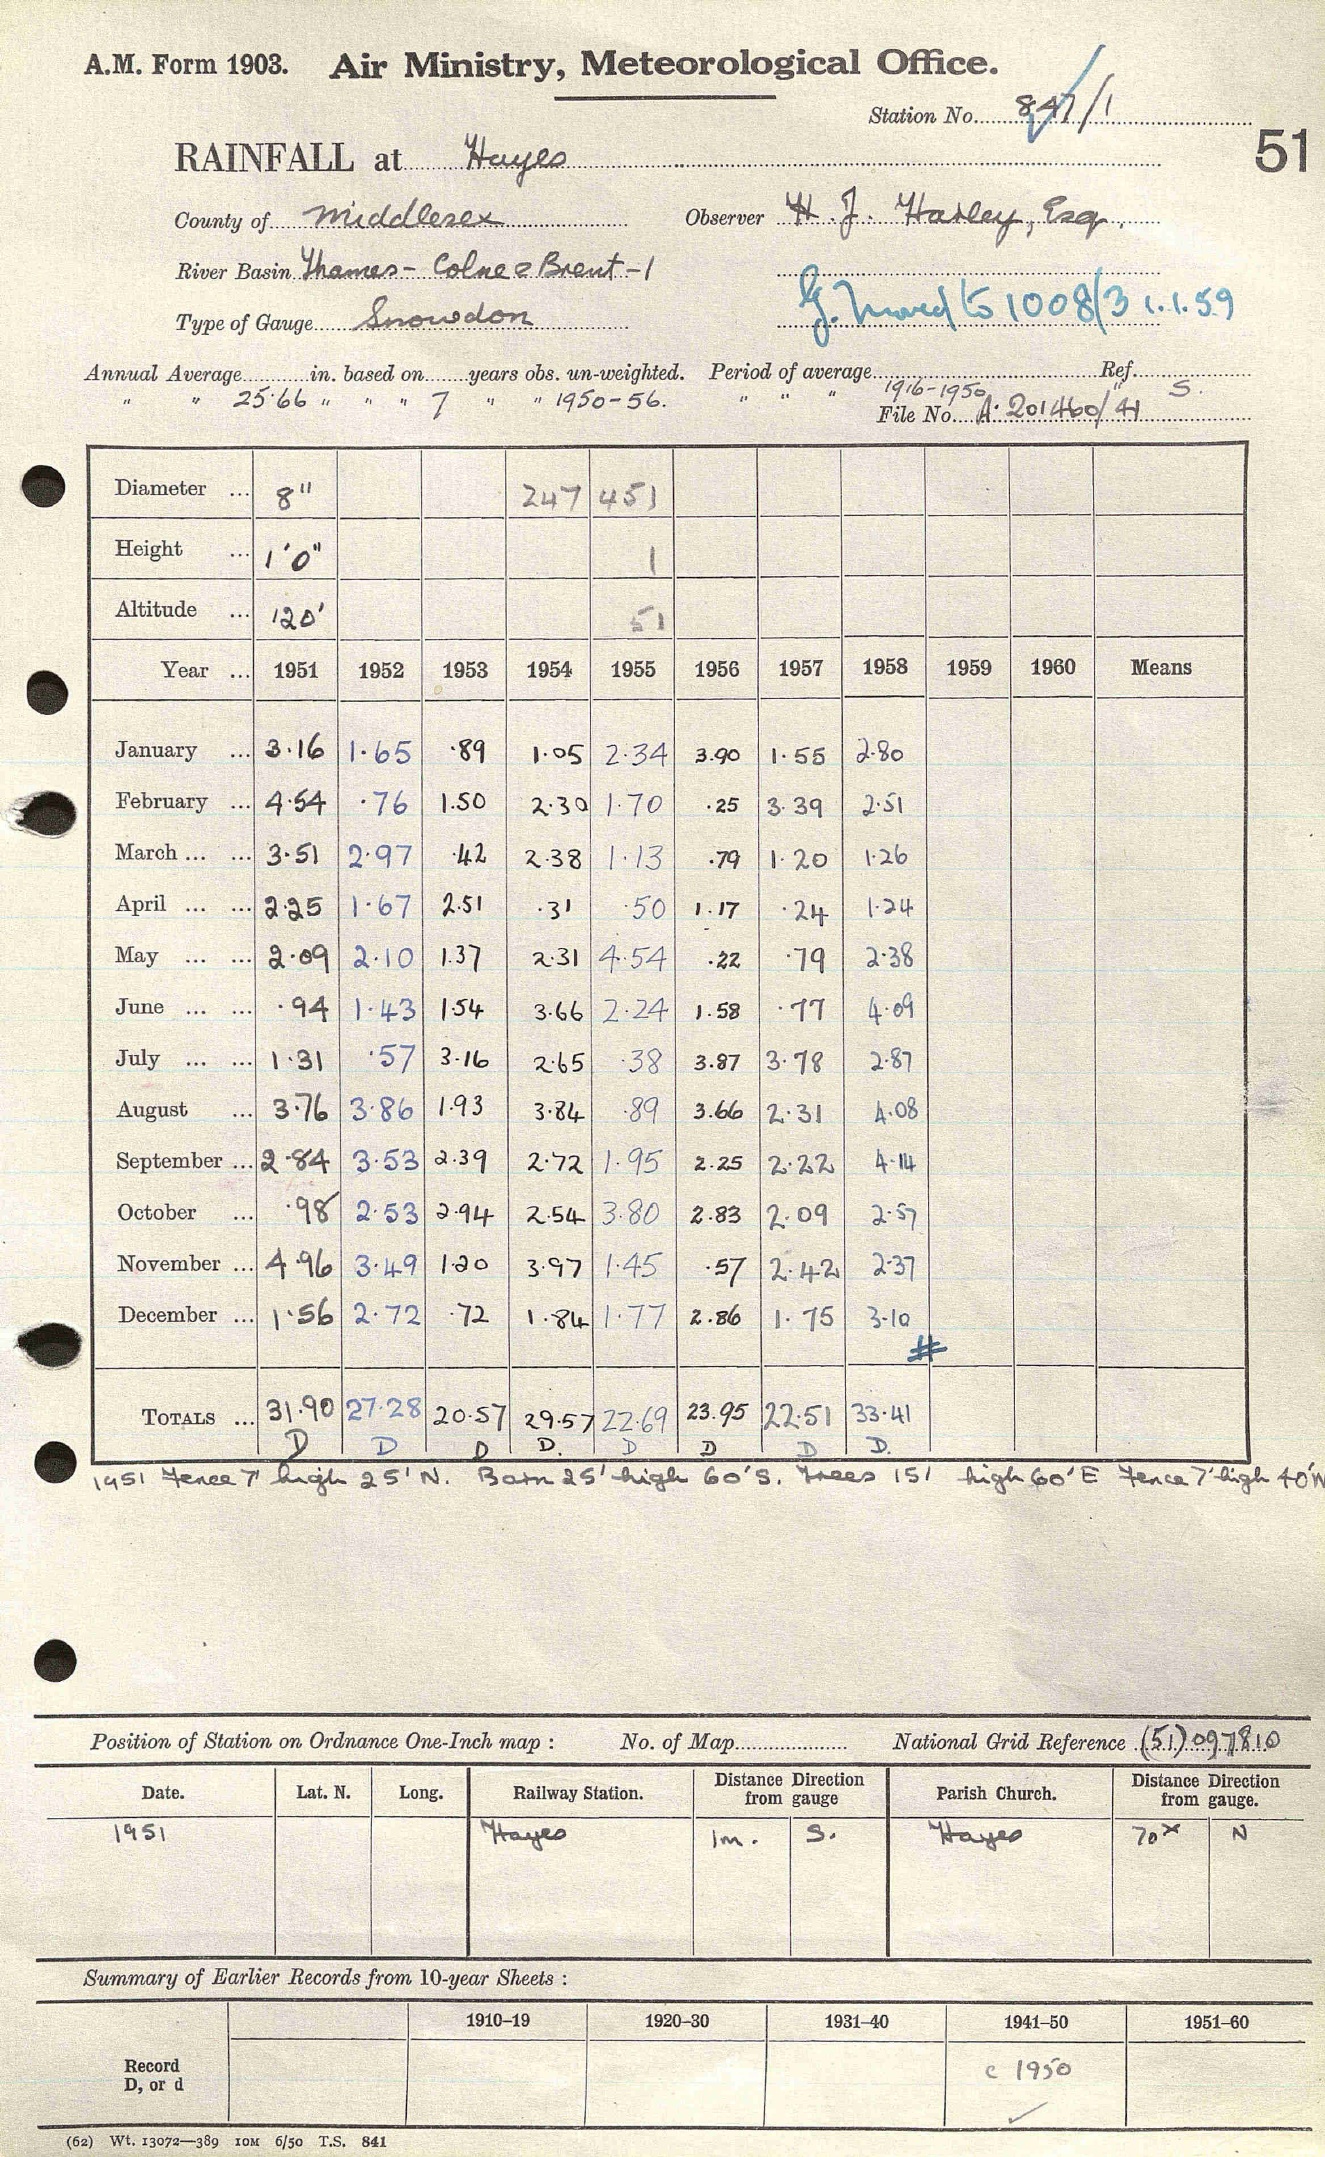 A.M. Form 1903. Air Ministry, Meteorological Office.
Station No. 847/1
51
RAINFALL at Hayes
County of Middlesex Observer H. J. Harley, Esq.
River Basin Thames - Colne & Brent - 1
Type of Gauge Snowdon G. moved to 1008/3 1.1.59
Annual Average in. based on years obs. un-weighted. Period of average Ref.
" " 25.66 " " " 7 " " 1950-56. " " " 1916-1950 " S.
File No. A.201460/41
Diameter ... 8" 247 451
Height ... 1'0" 1
Altitude ... 120' 51
Year ... 1951 1952 1953 1954 1955 1956 1957 1958 1959 1960 Means
January ... 3.16 1.65 .89 1.05 2.34 3.90 1.55 2.80
February ... 4.54 .76 1.50 2.30 1.70 .25 3.39 2.51
March ... ... 3.51 2.97 .42 2.38 1.13 .79 1.20 1.26
April ... ... 2.25 1.67 2.51 .31 .50 1.17 .24 1.24
May ... ... 2.09 2.10 1.37 2.31 4.54 .22 .79 2.38
June ... ... .94 1.43 1.54 3.66 2.24 1.58 .77 4.09
July ... ... 1.31 .57 3.16 2.65 .38 3.87 3.78 2.87
August ... 3.76 3.86 1.93 3.84 .89 3.66 2.31 4.08
September ... 2.84 3.53 2.39 2.72 1.95 2.25 2.22 4.14
October ... .98 2.53 2.94 2.54 3.80 2.83 2.09 2.57
November ... 4.96 3.49 1.20 3.97 1.45 .57 2.42 2.37
December ... 1.56 2.72 .72 1.84 1.77 2.86 1.75 3.10
#
TOTALS ... 31.90 27.28 20.57 29.57 22.69 23.95 22.51 33.41
D D D D. D D D D.
1951 Fence 7' high 25' N. Barn 25' high 60' S. Trees 15' high 60' E Fence 7' high 40' W
Position of Station on Ordnance One-Inch map : No. of Map National Grid Reference (51) 097810
Date. Lat. N. Long. Railway Station. Distance Direction from gauge Parish Church. Distance Direction from gauge.
1951 Hayes 1m. S. Hayes 70x N
Summary of Earlier Records from 10-year Sheets :
1910-19 1920-30 1931-40 1941-50 1951-60
Record
D, or d
c 1950
(62) Wt. 13072—389 10M 6/50 T.S. 841